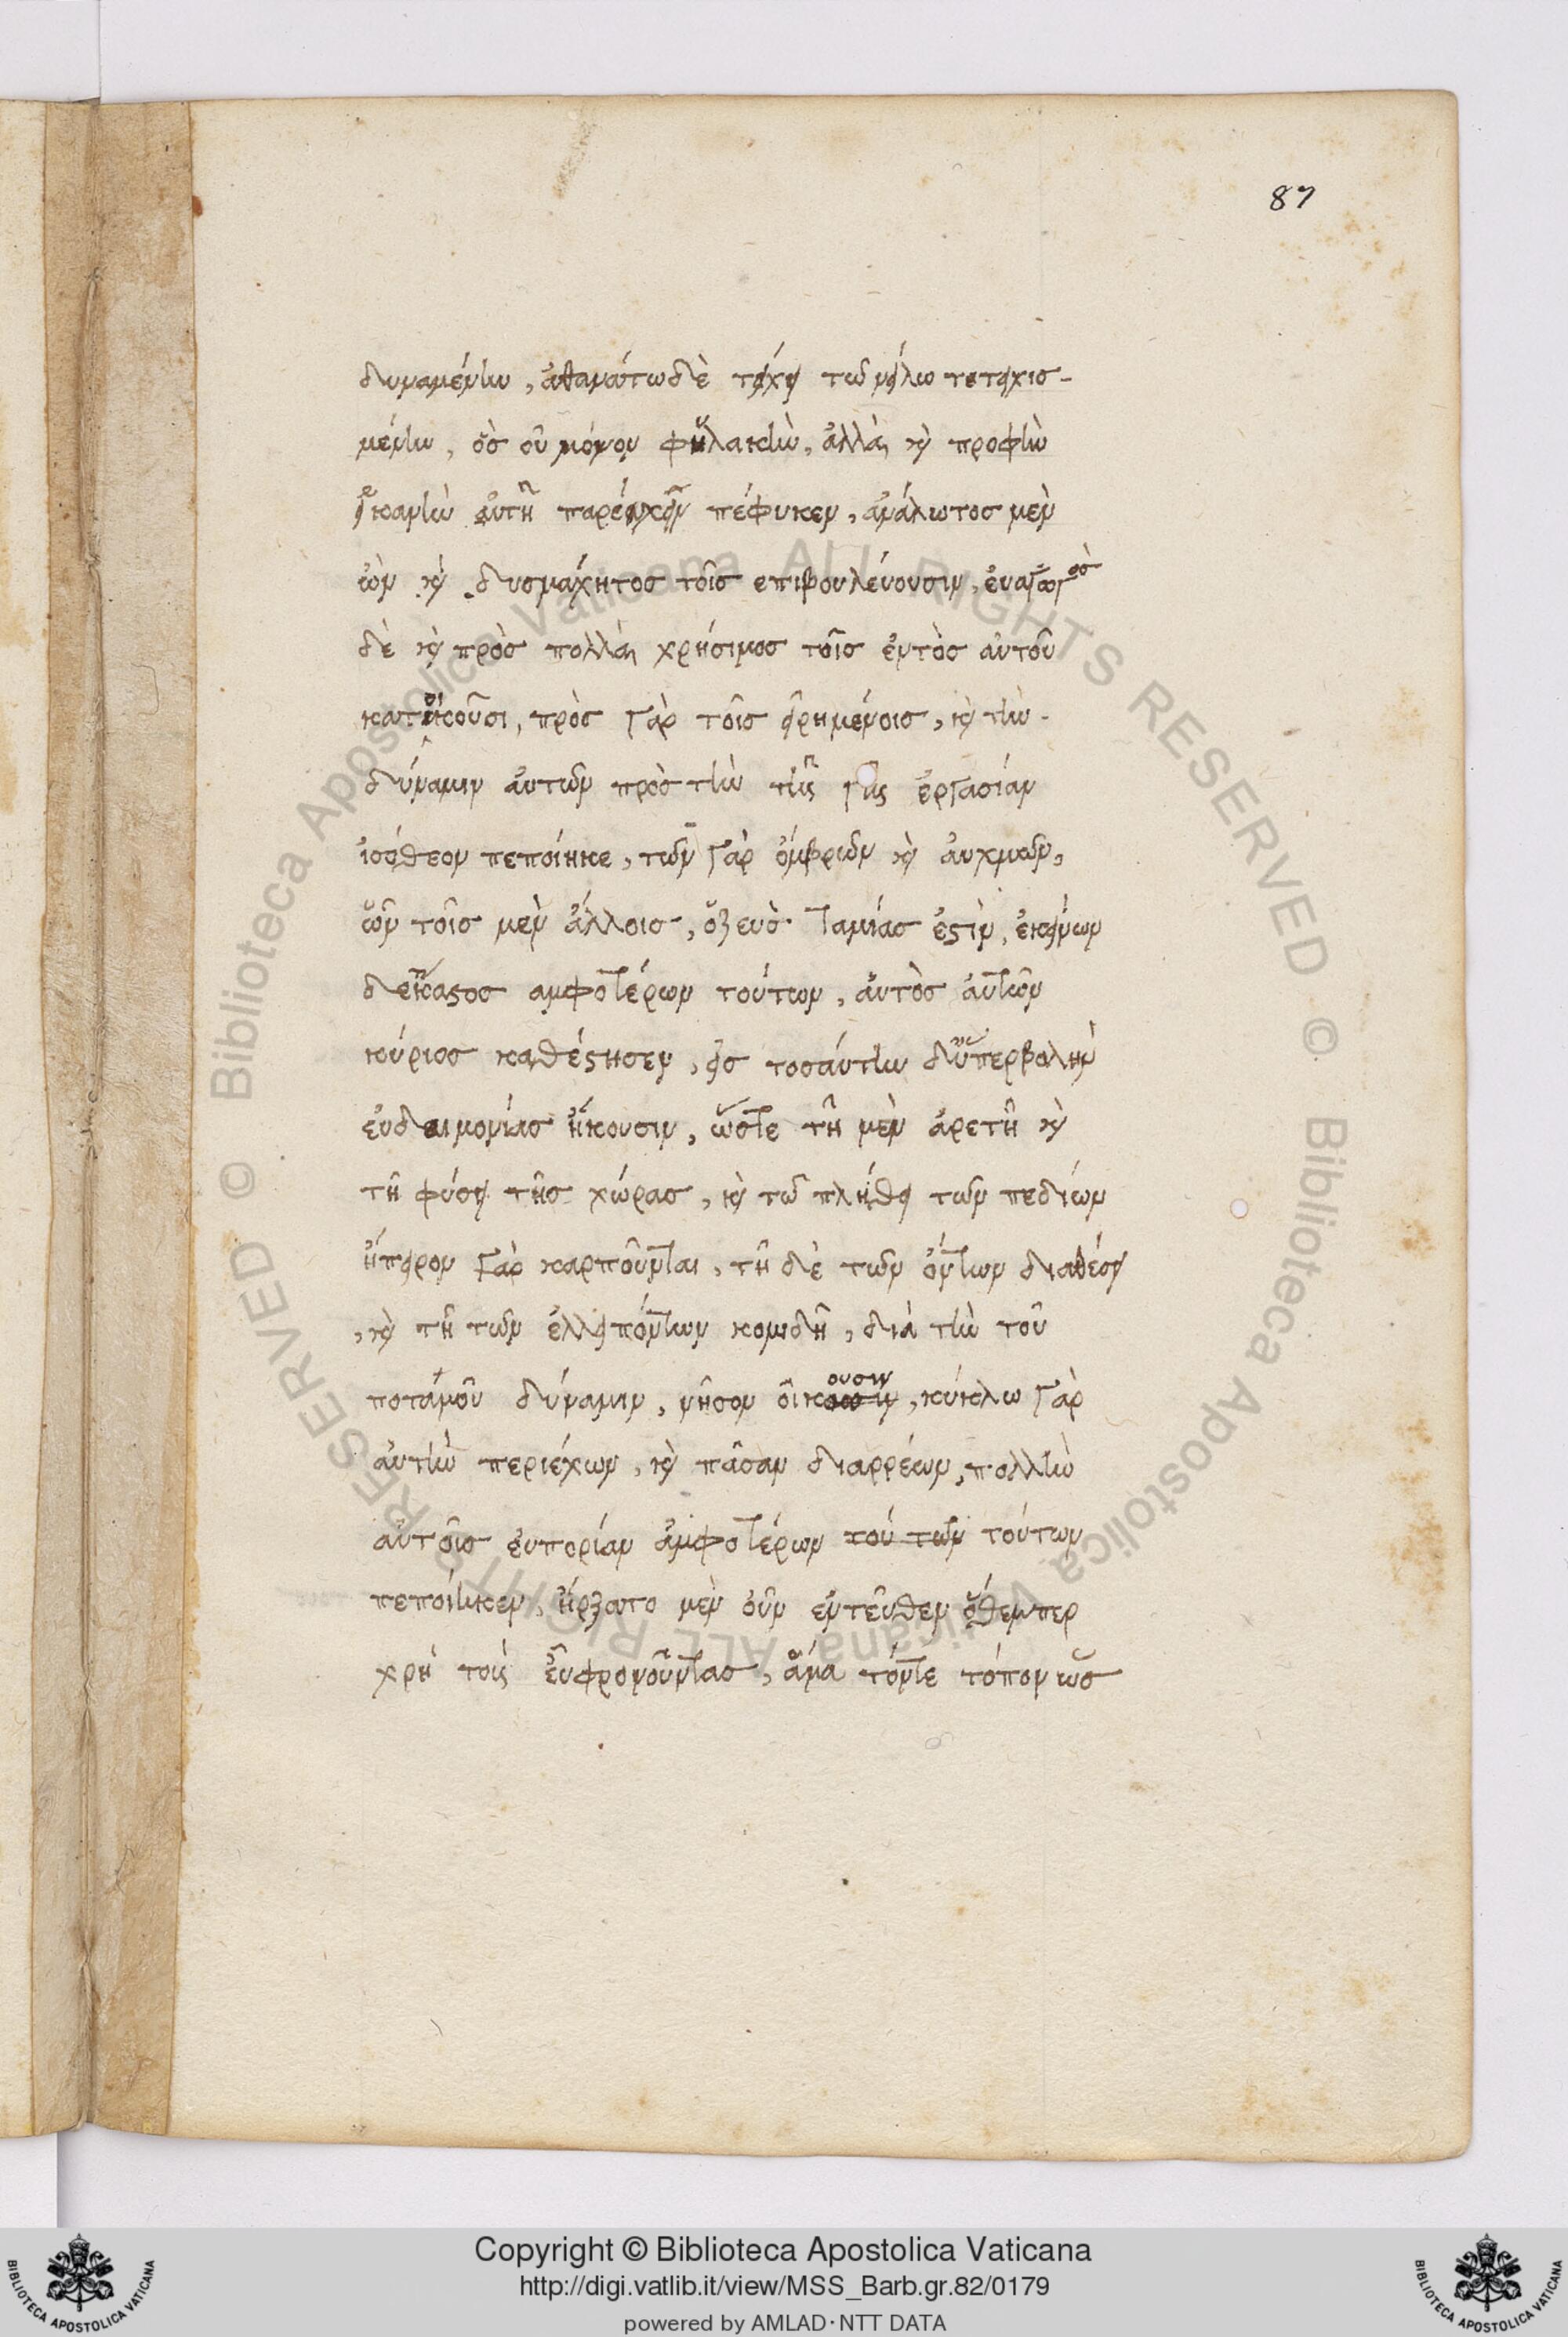 87
δυναμένην, ἀθανάτω δὲ τείχει τῶ νείλω τετειχισ-
μένην, ὃς οὐ μόνον φυλακὴν, ἀλλὰ καὶ προφὴν
ἱκανὴν αὐτῆ παρέχειν πέφυκεν, ἀνάλωτος μὲν
ὢν καὶ δυσμάχητος τοῖς επιβουλεύουσιν, ἐναγωγὸς
δὲ καὶ πρὸς πολλὰ χρήσιμος τοῖς ἐντὸς αὐτοῦ
κατοικοῦσι, πρὸς γὰρ τοῖς εἰρημένοις, καὶ τὴν
δύναμιν ἀυτῶν πρὸς τὴν τῆς γῆς ἐργασίαν
ἰσόθεον πεποίηκε, τῶν γὰρ ὄμβρων καὶ ἀυχμῶν,
ὧν τοῖς μὲν ἄλλοις, ὁ ζευς ταμίας ἐστὶν, ἐκείνων
δ' ἕκαστος αμφοτέρων τούτων, ἀυτὸς ἀυτῶν
κύριος καθέστησεν, εἰς τοσαύτην δ' ὑπερβολὴν
ἐυδαιμονίας ἥκουσιν, ὥστε τῆ μὲν ἀρετῆ καὶ
τῆ φύσει τῆς χώρας, καὶ τῶ πλήθει τῶν πεδίων
ἤπειρον γὰρ καρποῦνται, τῆ δὲ τῶν ὄντων διαθέσει
, καὶ τῆ τῶν ἐλλειπόντων κομιδῆ, διὰ τὴν τοῦ
ποταμοῦ δύναμιν, νῆσον οἰκουσιν, κύκλω γὰρ
ἀυτὴν περιέχων, καὶ πᾶσαν διαρρέων, πολλὴν
αὐτοῖς ἐυπορίαν ἀμφοτέρων τού των τούτων
πεποίηκεν, ἤρξατο μὲν οὖν ἐντεῦθεν ὅθεν περ
χρὴ τοὺς εὖ φρονοῦντας, ἅμα τόν τε τόπον ὡς
Copyright © Biblioteca Apostolica Vaticana
http://digi.vatlib.it/view/MSS_Barb.gr.82/0179
powered by AMLAD·NTT DATA